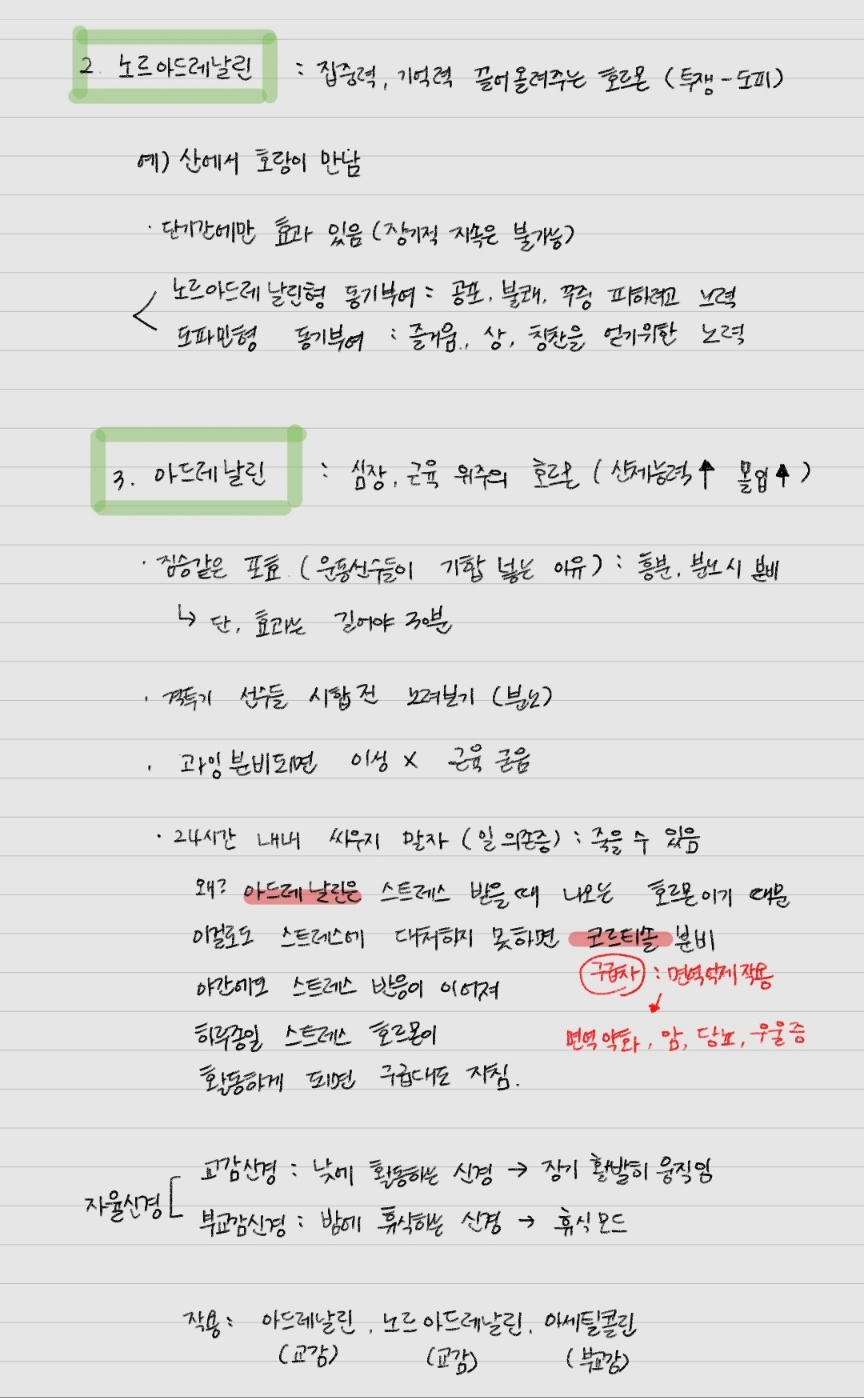 2. 노르아드레날린 : 집중력, 기억력 끌어올려주는 호르몬 (투쟁-도피)
예) 산에서 호랑이 만남
· 단기간에만 효과 있음 (장기적 지속은 불가능)
< 노르아드레날린형 동기부여 : 공포, 불쾌, 꾸중 피하려고 노력
도파민형 동기부여 : 즐거움, 상, 칭찬을 얻기위한 노력
3. 아드레날린 : 심장, 근육 위주의 호르몬 (신체능력↑ 몰입↑)
· 짐승같은 포효 (운동선수들이 기합 넣는 이유) : 흥분, 분노시 분비
↳ 단, 효과는 길어야 30분
· 격투기 선수들 시합 전 노려보기 (분노)
· 과잉분비되면 이성 X 근육 굳음
· 24시간 내내 싸우지 말자 (일 의존증) : 죽을 수 있음
왜? 아드레날린은 스트레스 받을때 나오는 호르몬이기 때문
이걸로도 스트레스에 대처하지 못하면 코르티솔 분비
구급차 : 면역억제작용
야간에도 스트레스 반응이 이어져
→ 면역 약화, 암, 당뇨, 우울증
하루종일 스트레스 호르몬이
활동하게 되면 구급대도 지침.
자율신경 [ 교감신경 : 낮에 활동하는 신경 → 장기 활발히 움직임
부교감신경 : 밤에 휴식하는 신경 → 휴식모드
작용 : 아드레날린, 노르아드레날린, 아세틸콜린
(교감) (교감) (부교감)